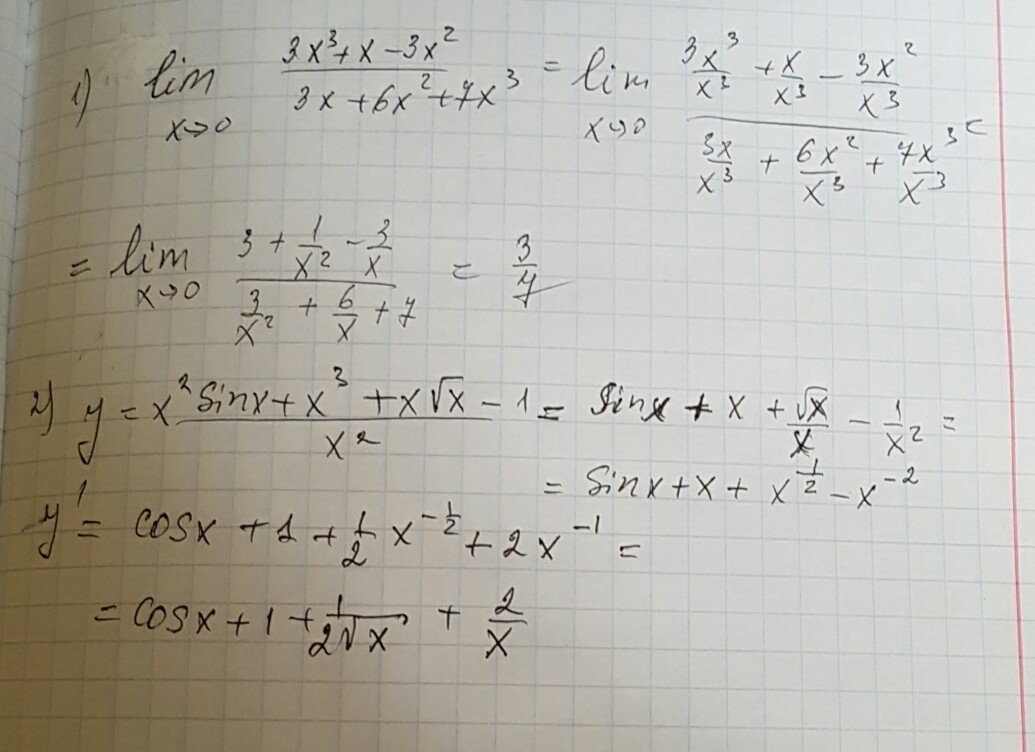 1) lim x→0 (3x³ + x − 3x²)/(3x + 6x² + 7x³) = lim x→0 (3x³/x³ + x/x³ − 3x²/x³)/(3x/x³ + 6x²/x³ + 7x³/x³) =
= lim x→0 (3 + 1/x² − 3/x)/(3/x² + 6/x + 7) = 3/7
2) y = (x² sinx + x³ + x√x − 1)/x² = sinx + x + √x/x − 1/x² =
= sinx + x + x^(1/2) − x^(−2)
y' = cosx + 1 + 1/2 x^(−1/2) + 2x^(−1) =
= cosx + 1 + 1/(2√x) + 2/x